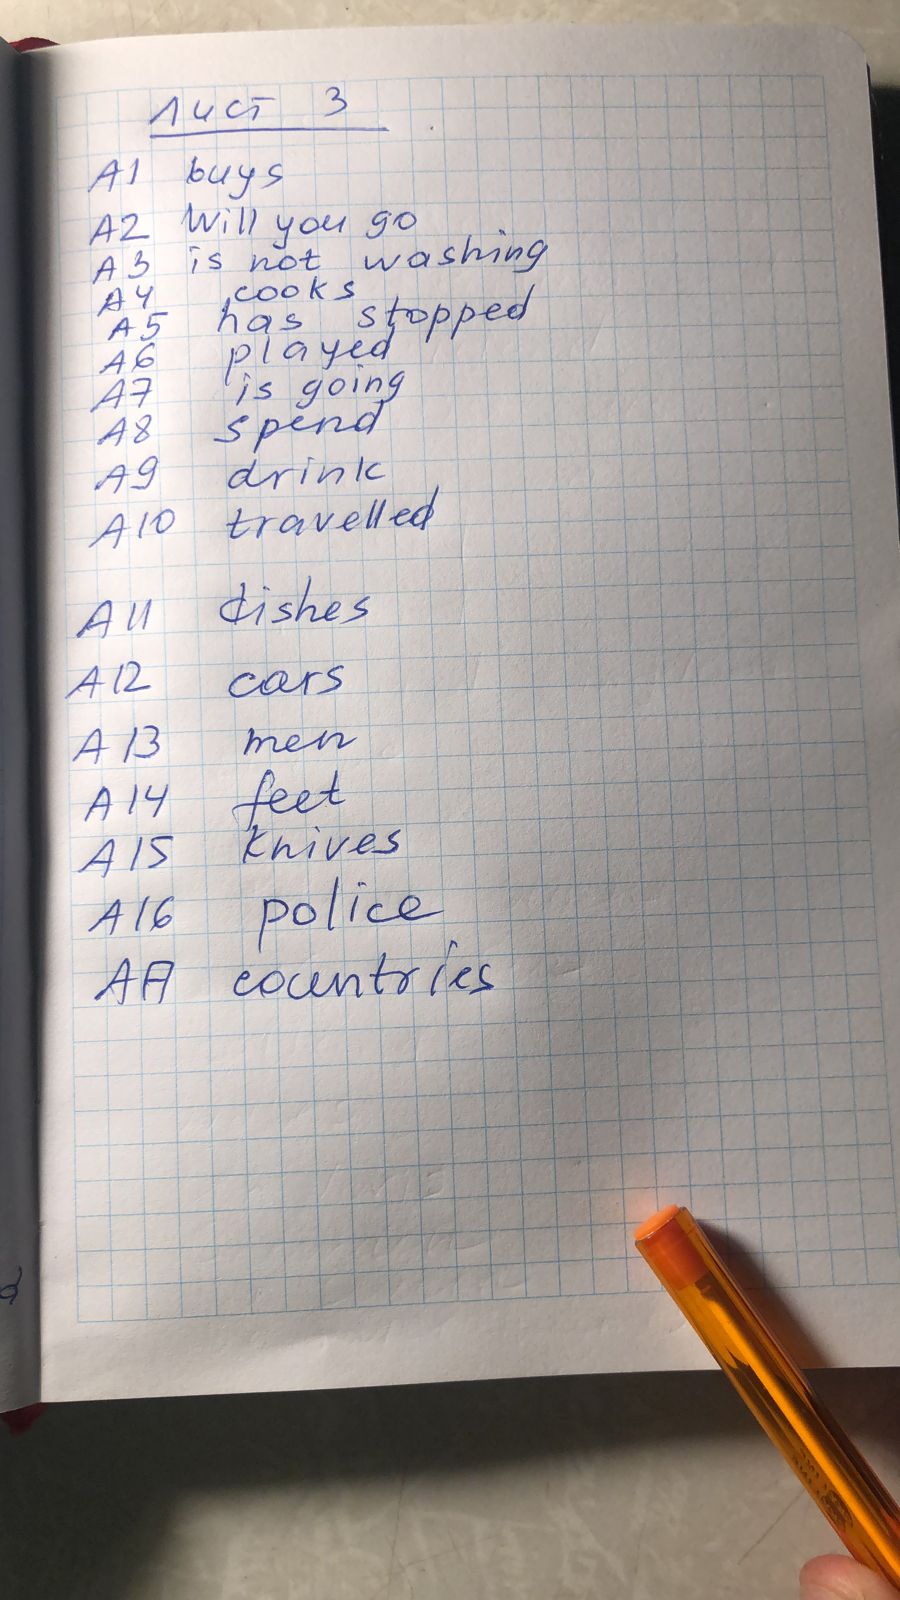 Лист 3
A1 buys
A2 Will you go
A3 is not washing
A4 cooks
A5 has stopped
A6 played
A7 is going
A8 spend
A9 drink
A10 travelled
A11 dishes
A12 cars
A13 men
A14 feet
A15 knives
A16 police
A17 countries